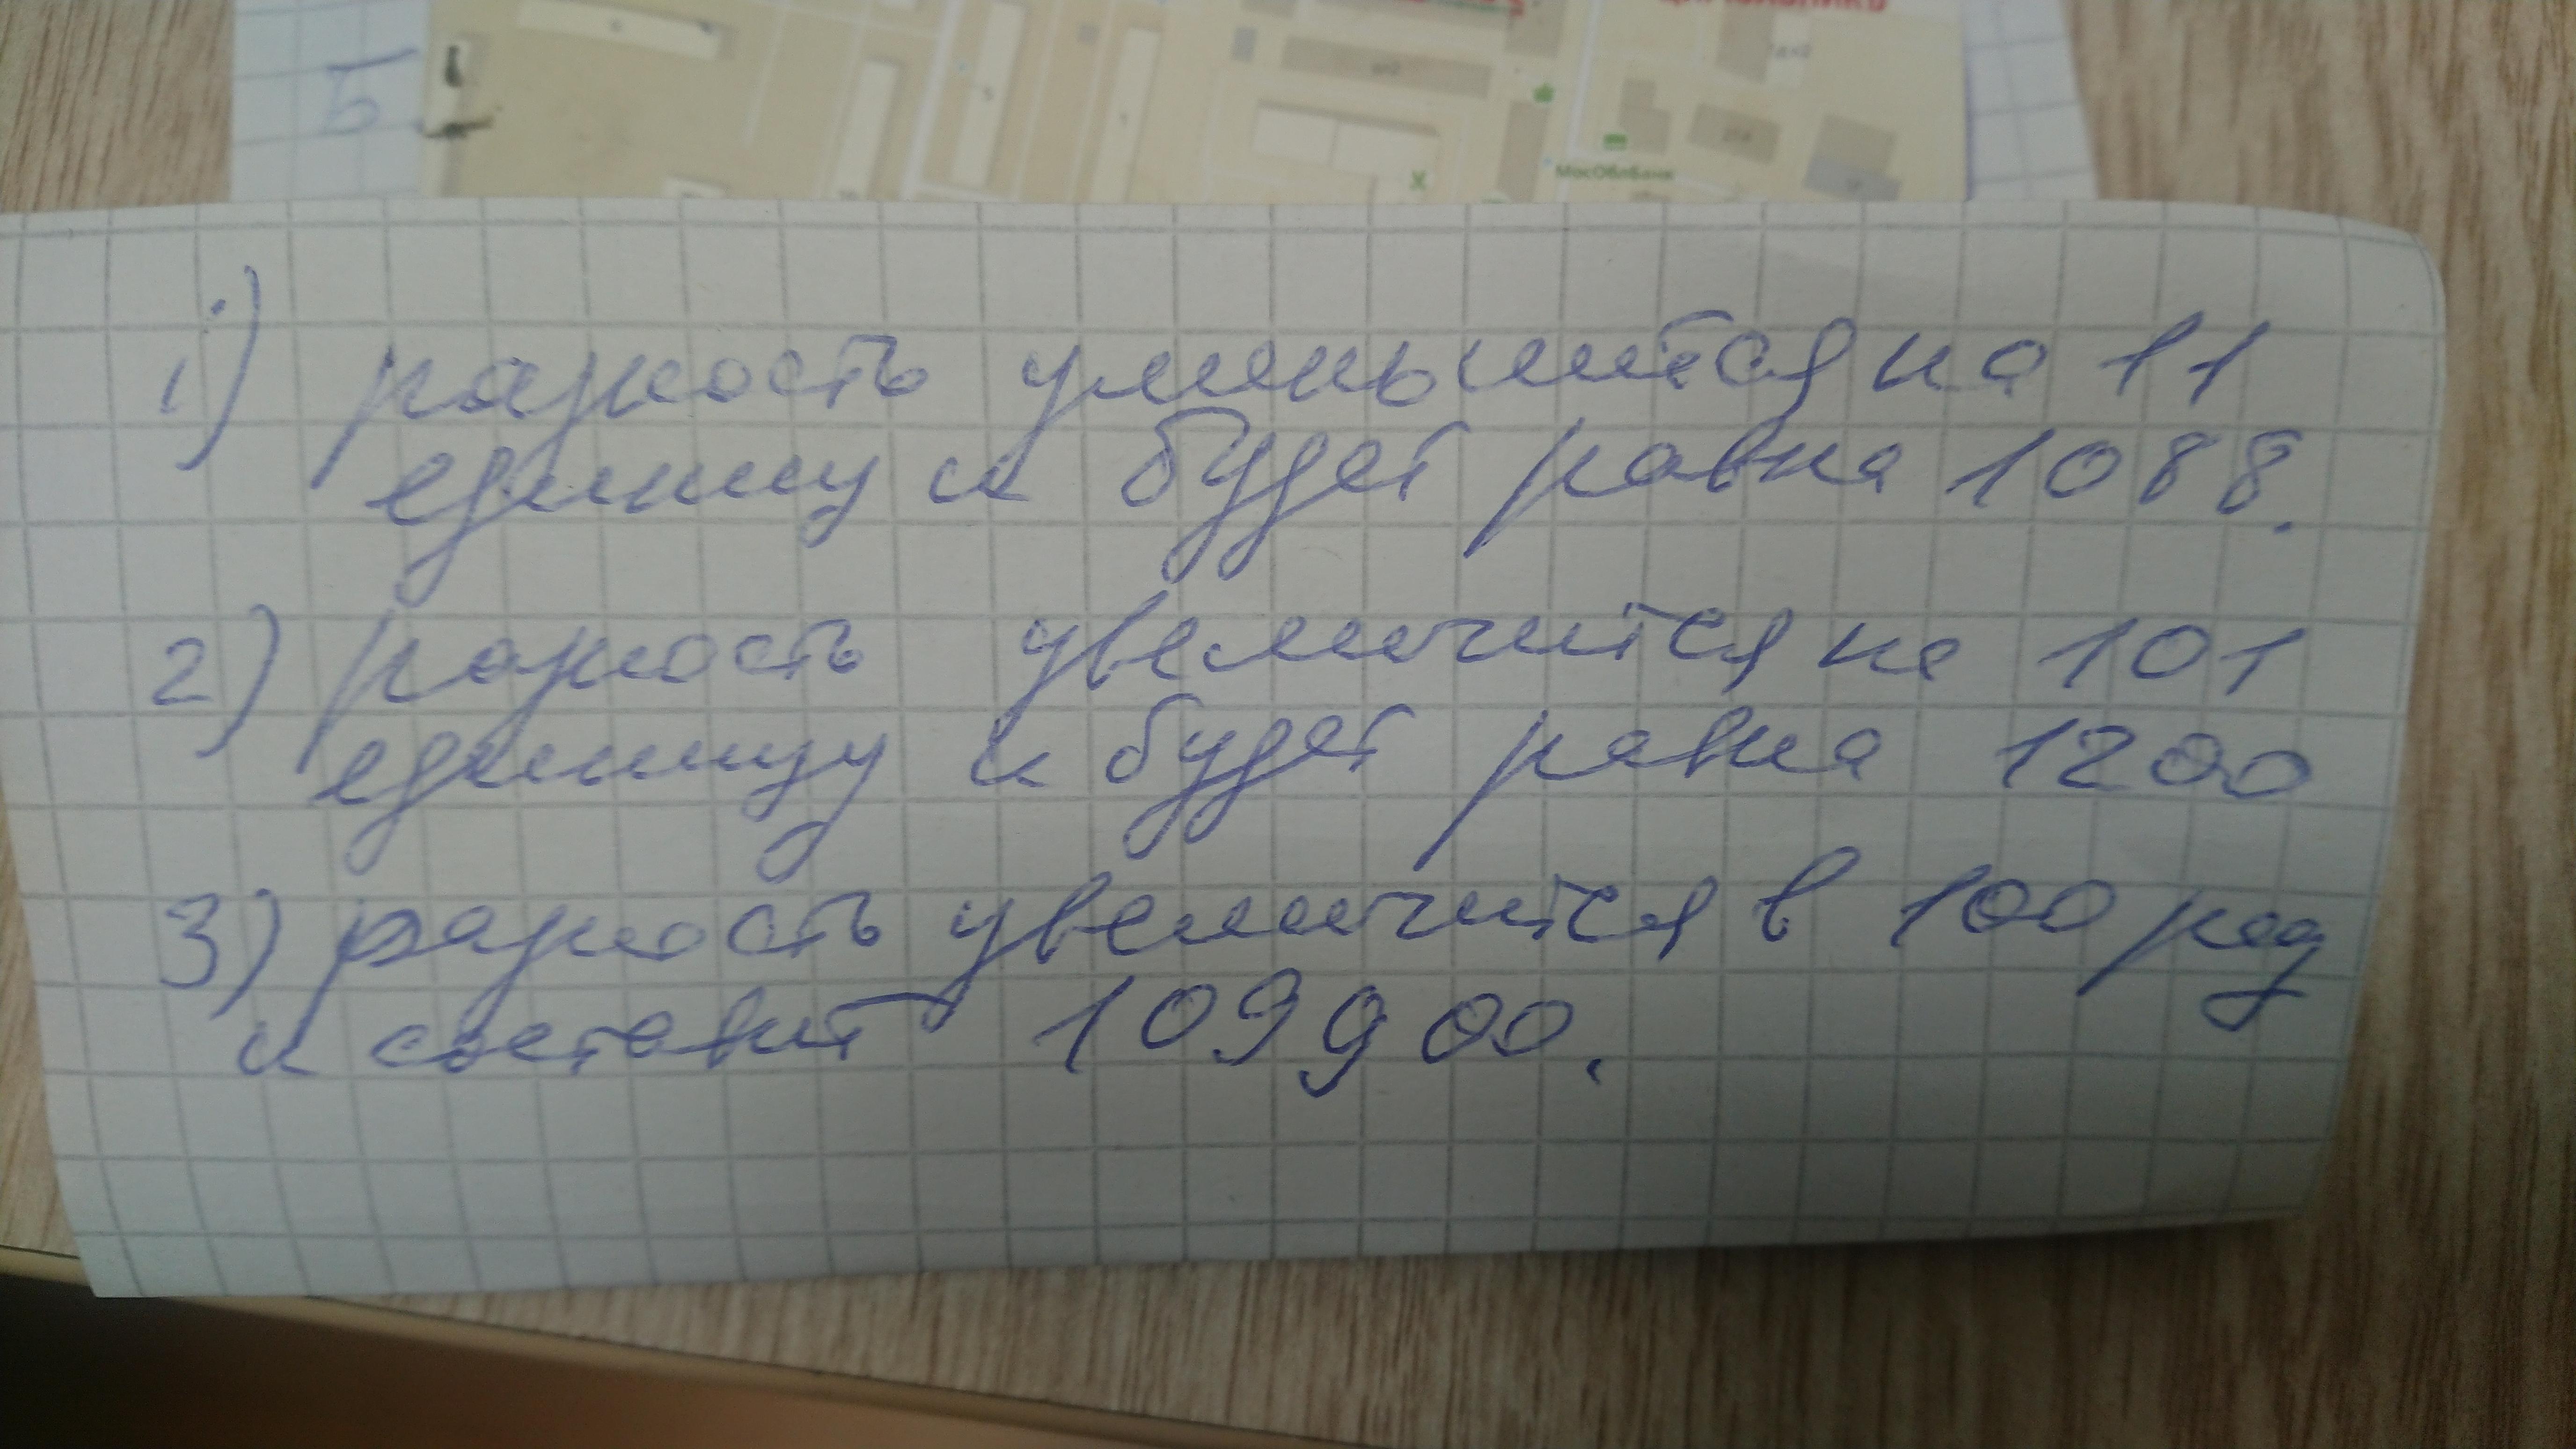 Б
МосОблбанк
1) разность уменьшится на 11
единиц и будет равна 1088.
2) разность увеличится на 101
единицу и будет равна 1200
3) разность увеличится в 100 раз
и составит 109900.